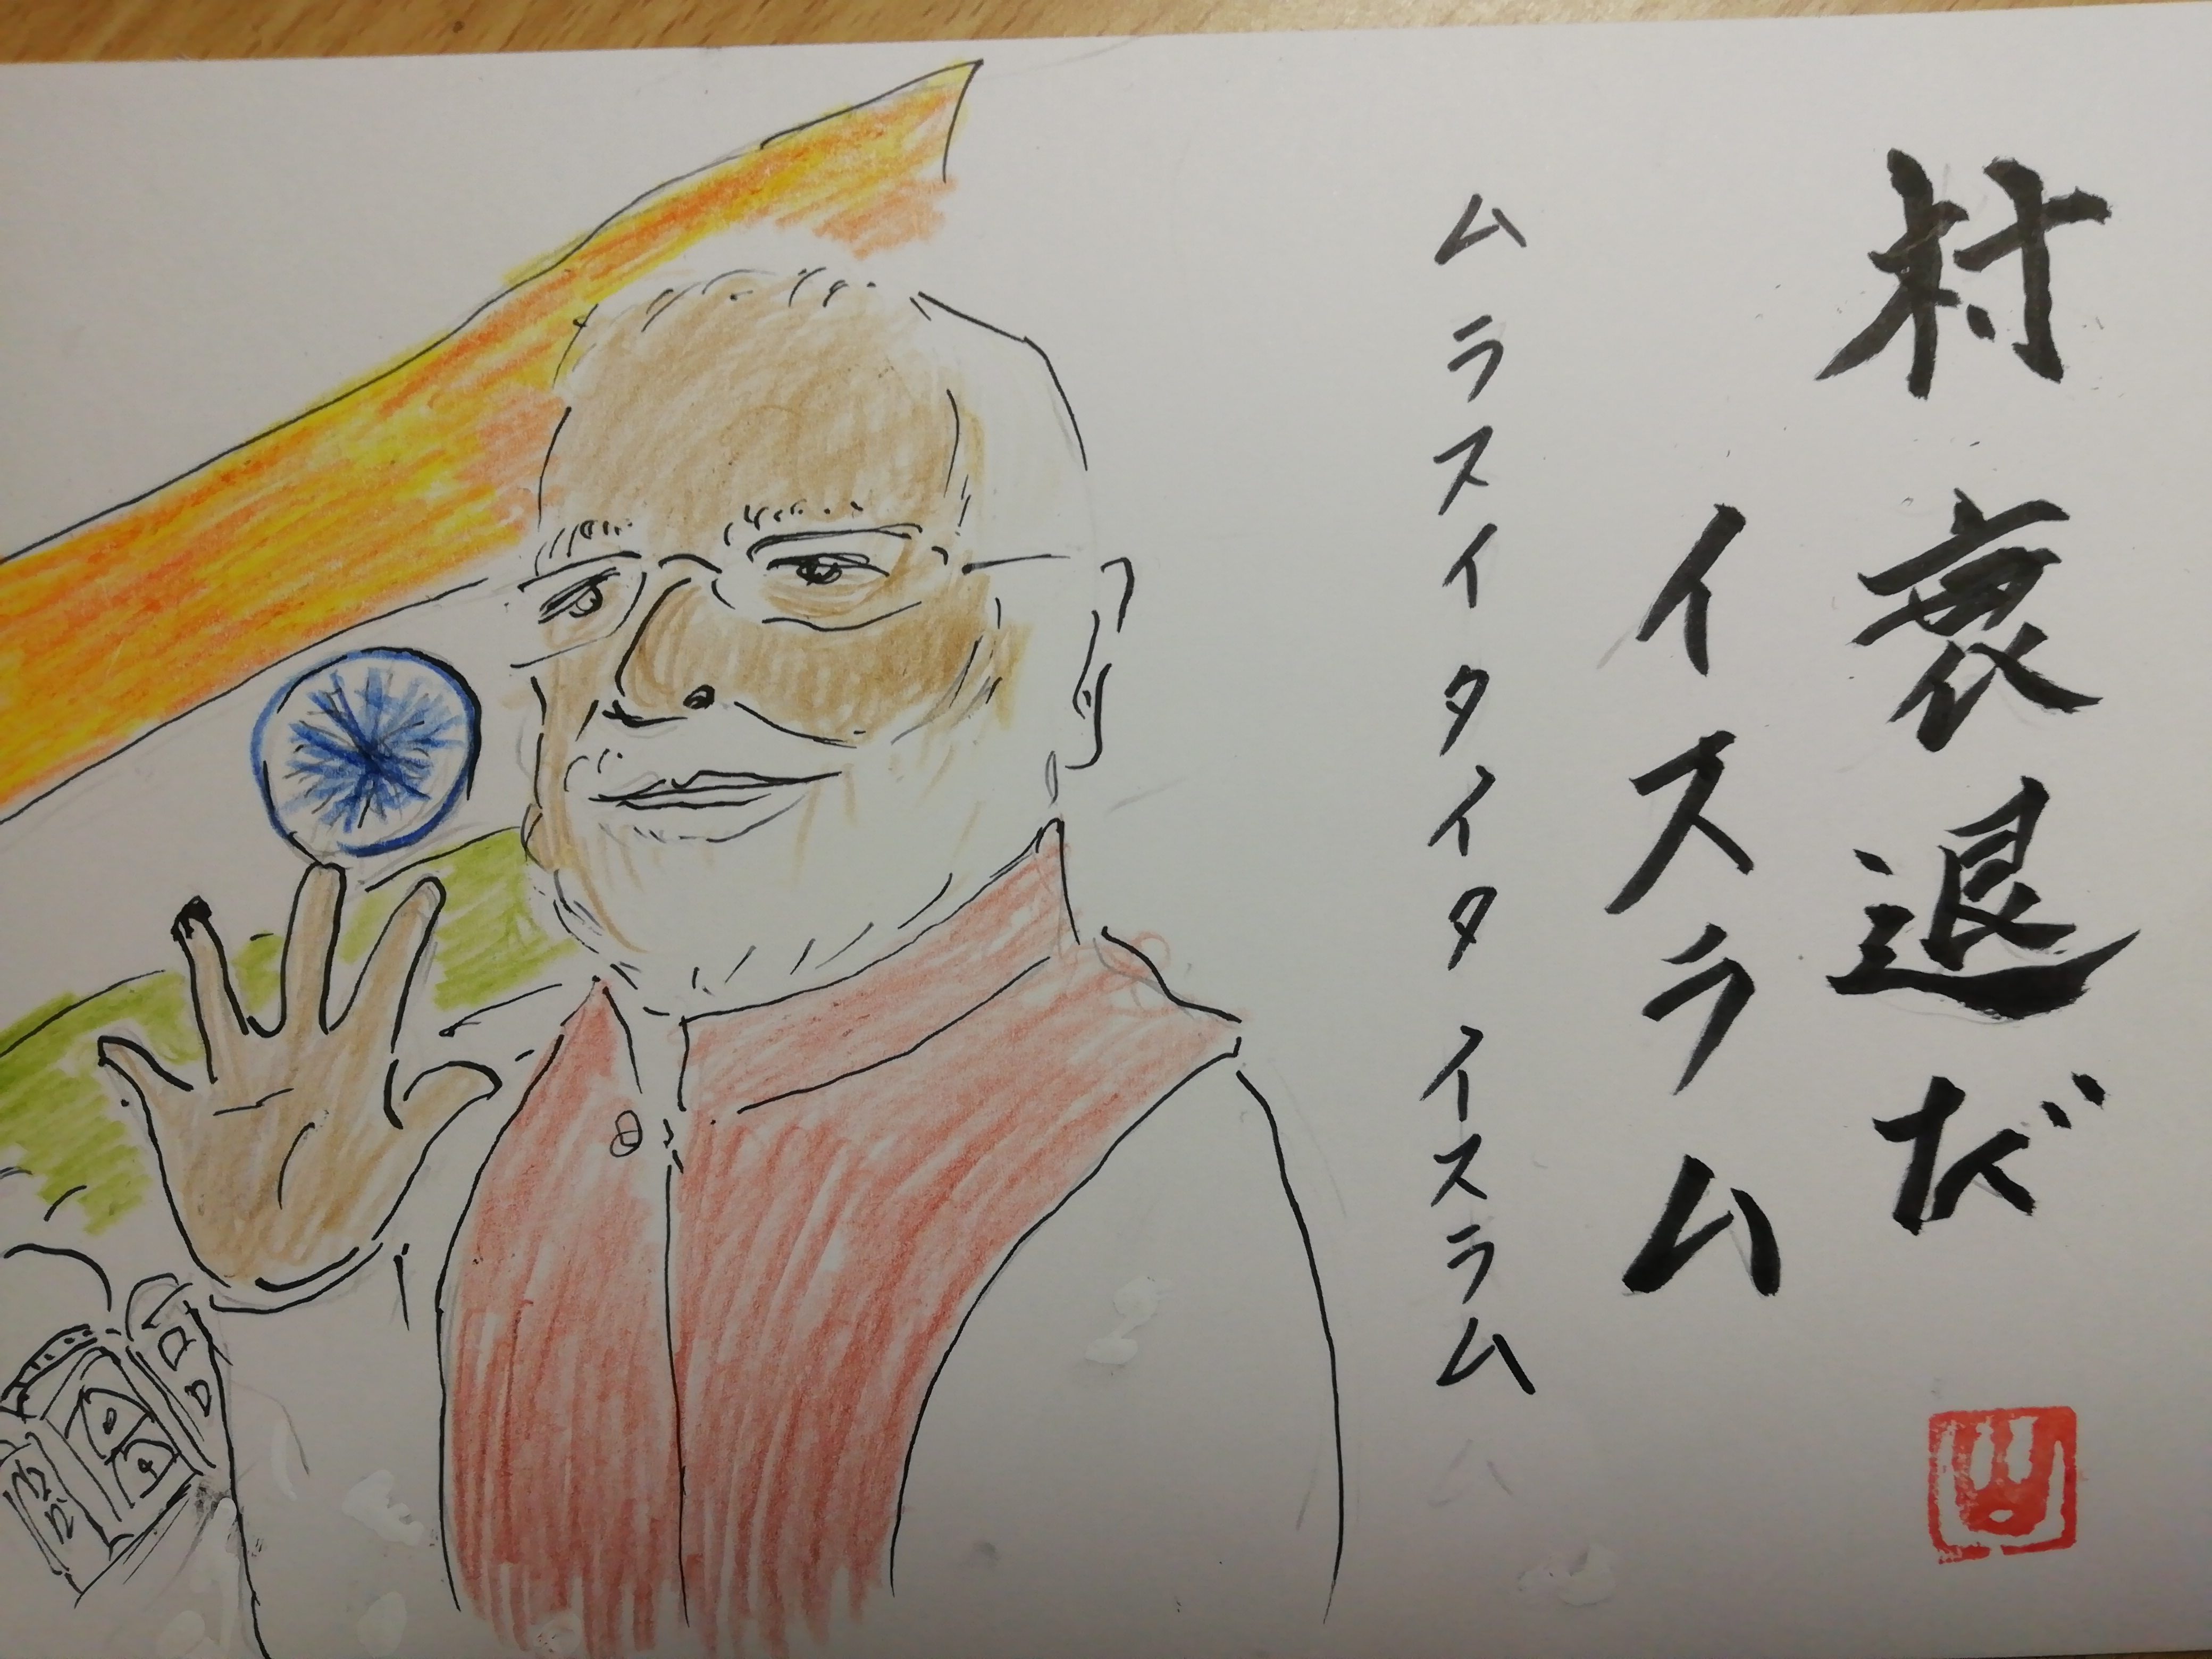 村衰退だ
イスラム
ムラスイタイタイスラム